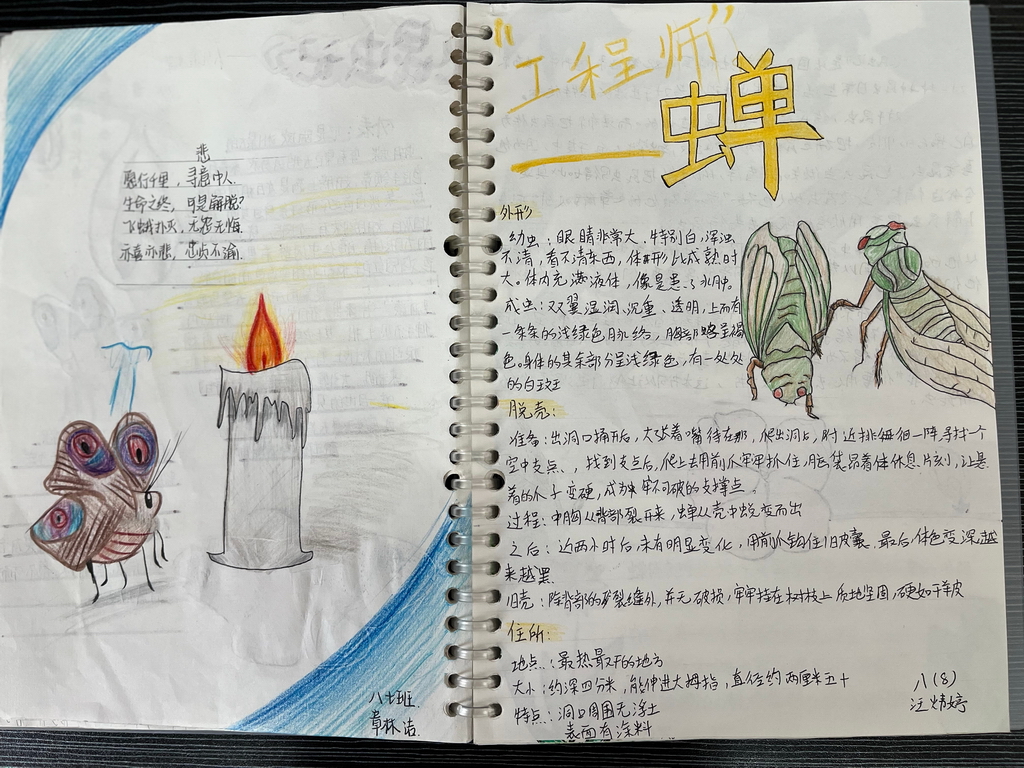 悲
愿行千里，寻意中人.
生命之终，可是解脱?
飞蛾扑火，无怨无悔.
亦喜亦悲，忠贞不渝.
八七班
章林洁
"工程师"
——蝉
外形
幼虫：眼睛非常大、特别白,浑浊
不清，看不清东西，体形比成熟时
大。体内充满液体，像是患了水肿。
成虫：双翼湿润、沉重、透明,上面有
一条条的浅绿色脉络，胸部略呈褐
色。身体的其余部分呈浅绿色，有一处处
的白斑
脱壳：
准备：出洞口捅开后，大张着嘴待在那，爬出洞后，附近徘徊一阵寻找一个
空中支点、，找到支点后,爬上去用前爪牢牢抓住，脑袋昂着体休息片刻，让悬
着的爪子变硬，成为牢不可破的支撑点。
过程：中胸从背部裂开来，蝉从壳中蜕变而出
之后：近两小时后未有明显变化，用前爪钩住旧皮囊、最后，体色变深,越
来越黑.
旧壳：除背部的破裂缝外,并无破损，牢牢挂在树枝上质地坚固，硬如干羊皮
住所：
地点：最热最干的地方
大小：约深四分米，能伸进大拇指，直径约两厘米五十
特点：洞口周围无浮土
表面有涂料
八(8)
汪炜婷